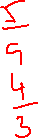 5
9
4
3